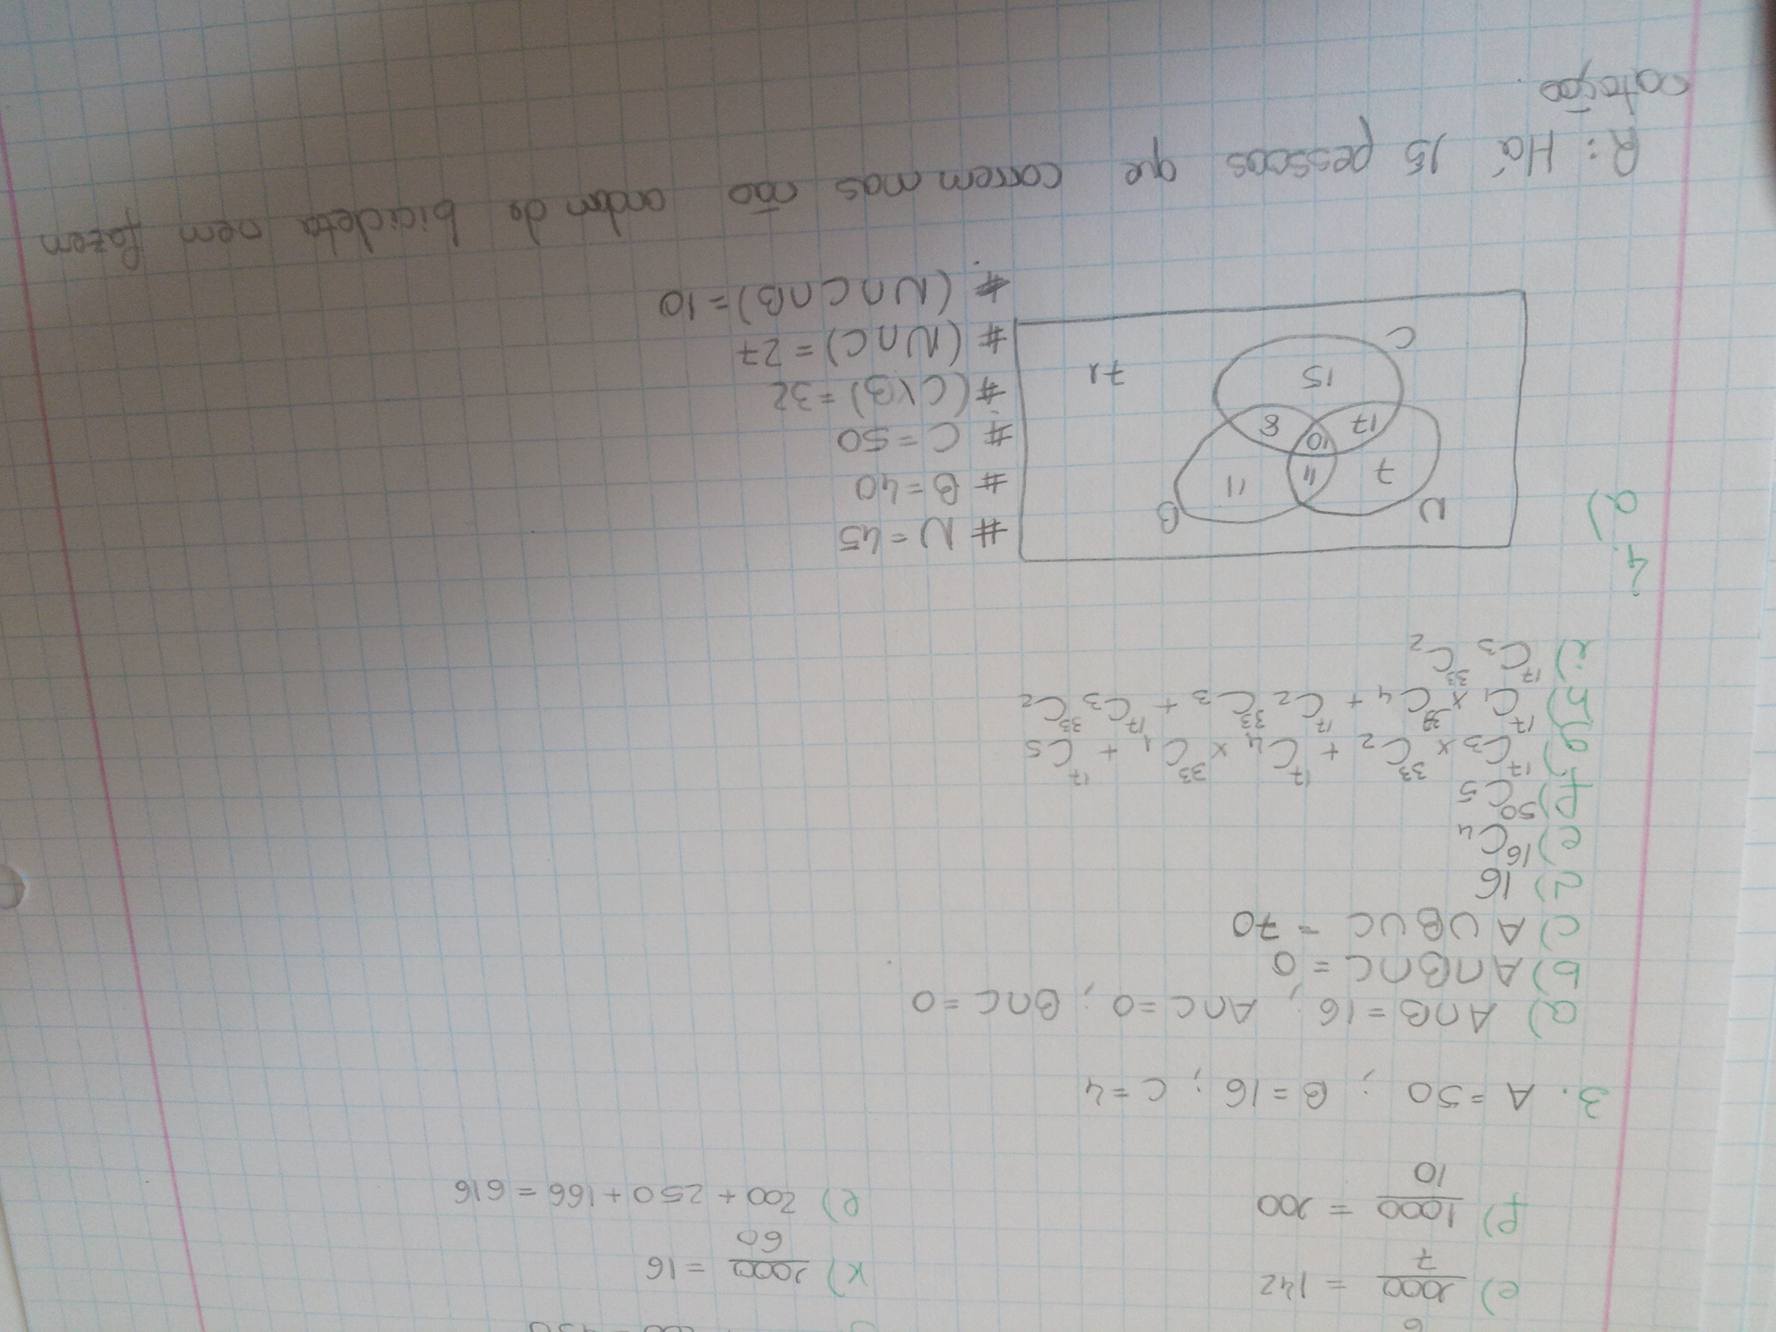 e) 1000/7 = 142
k) 1000/60 = 16
f) 1000/10 = 100
l) 200 + 250 + 166 = 616
3. A = 50 ; B = 16 ; C = 4
a) A∩B = 16 ; A∩C = 0 ; B∩C = 0
b) A∩B∩C = 0
c) A∪B∪C = 70
d) 16
e) ¹⁶C₄
f) ⁵⁰C₅
g) ¹⁷C₃ × ³³C₂ + ¹⁷C₄ × ³³C₁ + ¹⁷C₅
h) ¹⁷C₁ × ³³C₄ + ¹⁷C₂ ³³C₃ + ¹⁷C₃ ³³C₂
i) ¹⁷C₃ ³³C₂
4.
a)
N
B
7
11
11
10
17
8
15
71
C
# N = 45
# B = 40
# C = 50
# (C\B) = 32
# (N∩C) = 27
# (N∩C∩B) = 10
R: Há 15 pessoas que correm mas não andam de bicicleta nem fazem
natação.